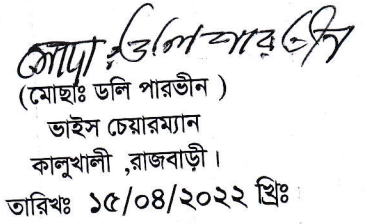 মোছা: ডলি পারভীন
(মোছাঃ ডলি পারভীন )
ভাইস চেয়ারম্যান
কালুখালী ,রাজবাড়ী।
তারিখঃ ১৫/০৪/২০২২ খ্রিঃ